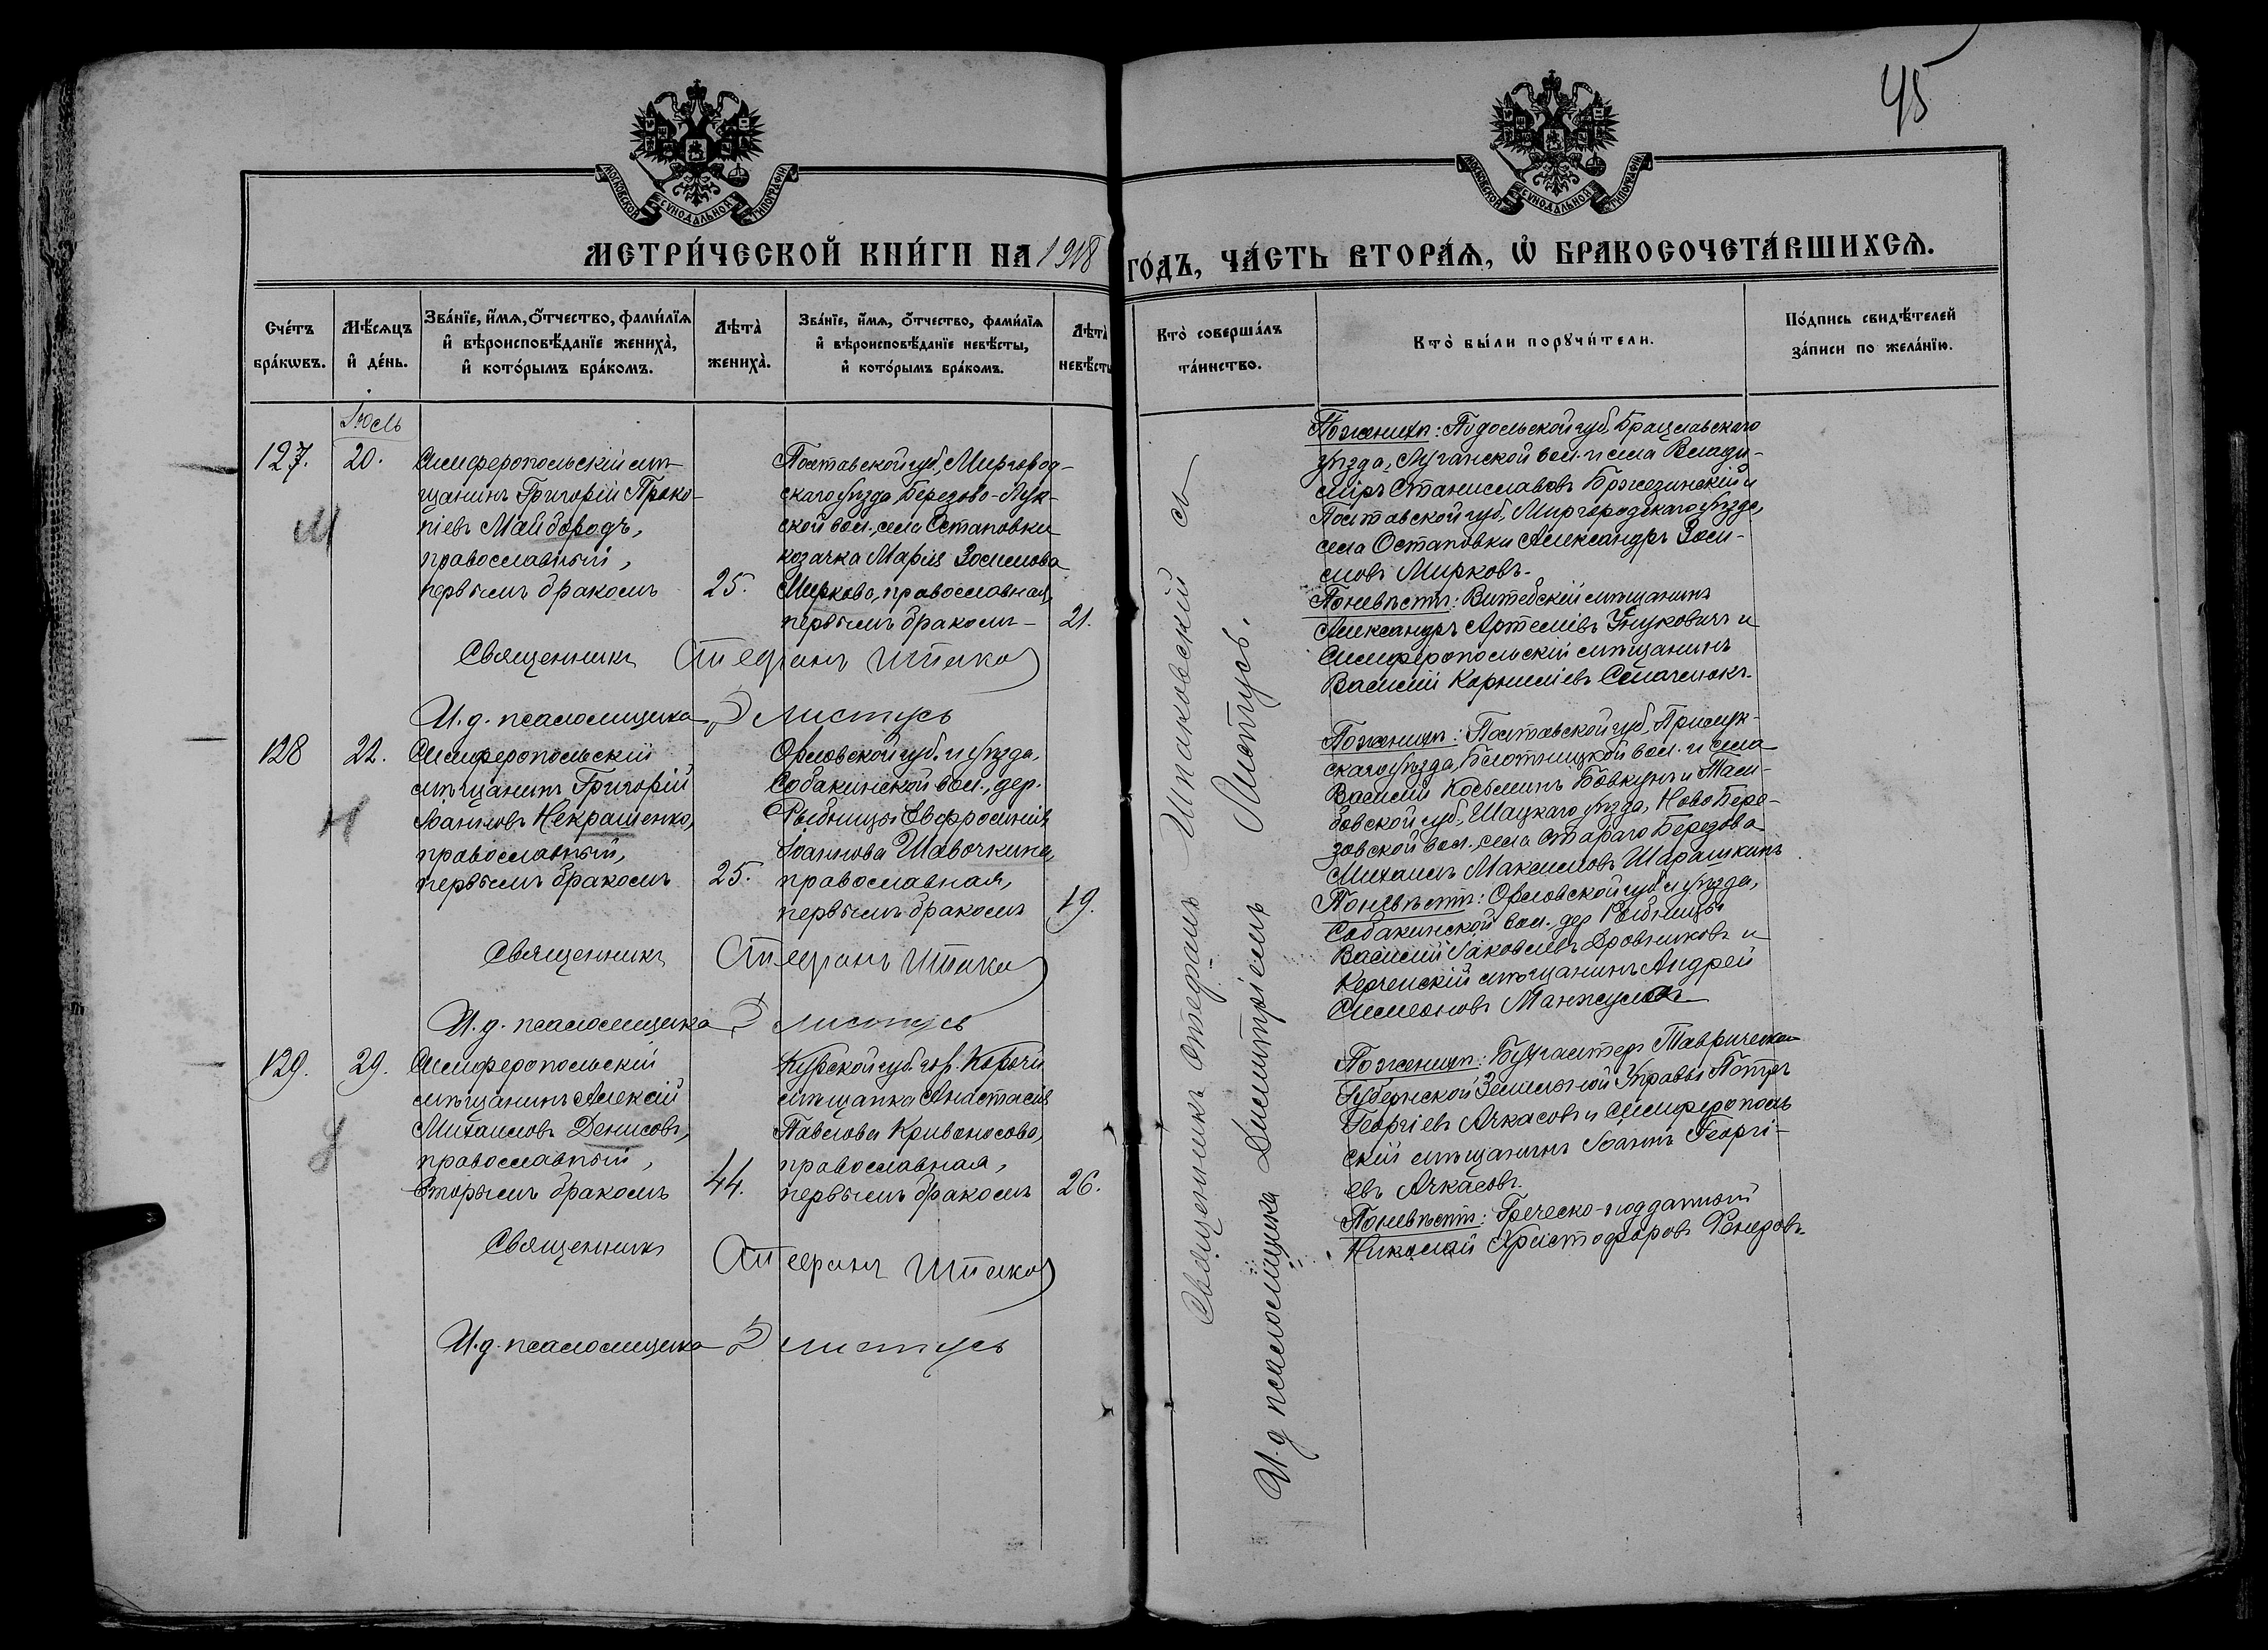 45
МОСКОВСКОЙ СУНОДАЛЬНОЙ ТИПОГРАФІИ
МОСКОВСКОЙ СУНОДАЛЬНОЙ ТИПОГРАФІИ
МЕТРИ́ЧЕСКОЙ КНИ́ГИ НА 1918 ГО́ДЪ, ЧА́СТЬ ВТОРА́Я, Ѡ БРАКОСОЧЕТА́ВШИХСЯ.
Сче́тъ бра́кѡвъ.
Мѣ́сяцъ и де́нь.
Зва́нїе, и́мя, о́тчество, фами́лїя
и вѣроисповѣ́данїе жениха̀,
и кото́рымъ бра́комъ.
Лѣта̀ жениха̀.
Зва́нїе, и́мя, о́тчество, фами́лїя
и вѣроисповѣ́данїе невѣ́сты,
и кото́рымъ бра́комъ.
Лѣта̀ невѣ́сты
Кто̀ соверша́лъ та́инство.
Кто̀ бы́ли порꙋчи́тели.
По́дпись свидѣ́телей
за́писи по жела́нїю.
Іюль
127.
20.
Симферопольскій мѣ-
щанинъ Григорій Проко-
піевъ Майбородъ,
православный,
первымъ бракомъ
25.
Полтавской губ., Миргород-
скаго уѣзда, Березово-Лук-
ской вол., села Остаповки
козачка Марія Зосимова
Миркова, православная,
первымъ бракомъ
21.
Священникъ Стефанъ Шпако
И. д. псаломщика Д Листусъ
Священникъ Стефанъ Шпаковскій съ
И. д. псаломщика Димитріемъ Листусъ.
По женихѣ: Подольской губ., Брацлавскаго
уѣзда, Луганской вол. и села Влади-
міръ Станиславовъ Бржезинскій и
Полтавской губ., Миргородскаго уѣзда,
села Остаповки Александръ Зоси-
мовъ Мирковъ.
По невѣстѣ: Витебскій мѣщанинъ
Александръ Артеміевъ и
Симферопольскій мѣщанинъ
Василій Корниліевъ
128
22.
Симферопольскій
мѣщанинъ Григорій
Іоанновъ Некрашенко,
православный,
первымъ бракомъ
25.
Орловской губ. и уѣзда,
Собакинской вол., дер.
Рыбницы Евфросинія
Іоаннова Шавочкина,
православная,
первымъ бракомъ
19.
Священникъ Стефанъ Шпако
И. д. псаломщика Д Листусъ
По женихѣ: Полтавской губ., Прилук-
скаго уѣзда, вол. и села
Василій Косьминъ Бовкунъ и Там-
бовской губ., Шацкаго уѣзда, Ново Бере-
зовской вол., села Стараго Березова
Михаилъ Максимовъ Шарашкинъ
По невѣстѣ: Орловской губ. и уѣзда,
Собакинской вол., дер. Рыбницы
Василій Іаковлевъ Дровниковъ и
Керченскій мѣщанинъ Андрей
Симеоновъ
129.
29.
Симферопольскій
мѣщанинъ Алексій
Михаиловъ Денисовъ,
православный,
вторымъ бракомъ
44.
Курской губ. гор. Корочи
мѣщанка Анастасія
Павлова Кривоносова,
православная,
первымъ бракомъ
26.
Священникъ Стефанъ Шпако
И. д. псаломщика Д Листусъ
По женихѣ: Бухгалтеръ Таврической
Губернской Земельной Управы Петръ
Георгіевъ Ачкасовъ и Симферополь
скій мѣщанинъ Іоаннъ Георгі-
евъ Ачкасовъ.
По невѣстѣ: Греческо-подданный
Николай Христофоровъ